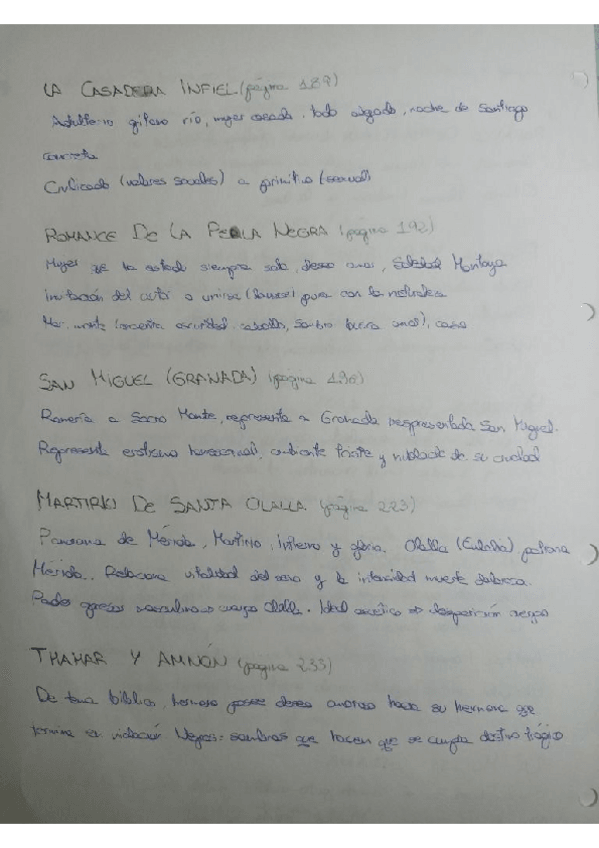 LA CASADERA INFIEL (página 187)
Adulterio gitano río, mujer casada, todo, noche de Santiago
concreta
Civilizado (valores sociales) a primitivo (sexual)
ROMANCE DE LA PENA NEGRA (página 192)
Mujer que ha estado siempre sola, deseo amor, Soledad Montoya
invitación del a unirse pura con la naturaleza
Mar, monte oscuridad, caballo, busca amor), casa
SAN MIGUEL (GRANADA) (página 196)
Romería a Sacro Monte, representa a Granada representada San Miguel.
Representa erotismo homosexual, ambiente triste y nublado de su ciudad
MARTIRIO DE SANTA OLALLA (página 223)
Panorama de Mérida, Martirio, Infierno y gloria. Olalla (Eulalia) patrona
Mérida. Relaciona vitalidad del seno y la intensidad muerte
cuerpo Olalla. Ideal ascético => desaparición cuerpo
THAMAR Y AMNÓN (página 233)
De tema bíblico, hermano posee deseo amoroso hacia su hermana que
termina en violación. Negros: sombras que hacen que se cumpla destino trágico